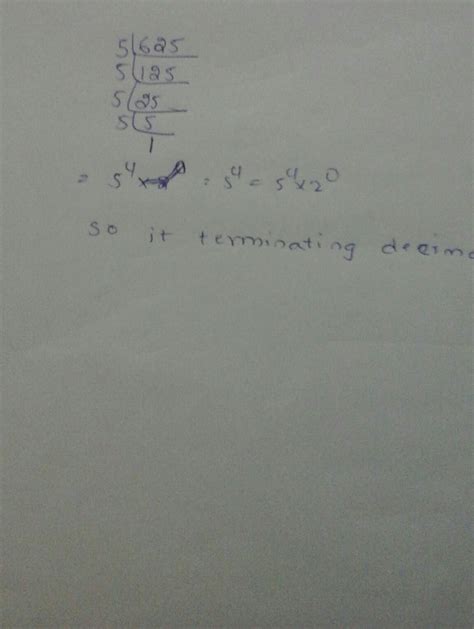 5 | 625
5 | 125
5 | 25
5 | 5
1
= 5⁴ × = 5⁴ = 5⁴ × 2⁰
so it terminating decima